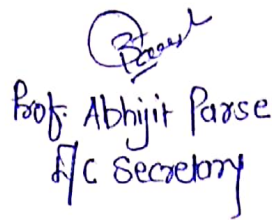 Prof. Abhijit Parse
I/C Secretory